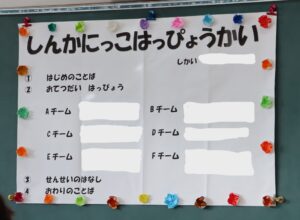 しんかにっこはっぴょうかい
しかい
① はじめのことば
② おてつだい はっぴょう
Aチーム Bチーム
Cチーム Dチーム
Eチーム Fチーム
③ せんせいのはなし
④ おわりのことば